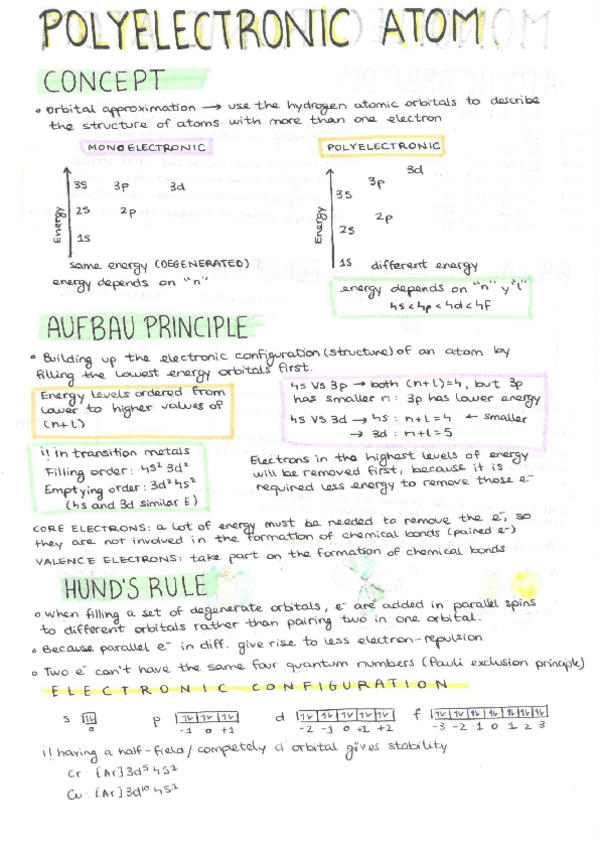 POLYELECTRONIC ATOM
CONCEPT
• Orbital approximation → use the hydrogen atomic orbitals to describe
the structure of atoms with more than one electron
MONOELECTRONIC
Energy
3s 3p 3d
2s 2p
1s
same energy (DEGENERATED)
energy depends on "n"
POLYELECTRONIC
Energy
3d
3p
3s
2p
2s
1s different energy
energy depends on "n" y "l"
4s < 4p < 4d < 4f
AUFBAU PRINCIPLE
• Building up the electronic configuration (structure) of an atom by
filling the lowest energy orbitals first.
Energy levels ordered from
lower to higher values of
(n+l)
4s VS 3p → both (n+l)=4, but 3p
has smaller n: 3p has lower energy
4s VS 3d → 4s: n+l=4 ← smaller
→ 3d: n+l=5
¡! In transition metals
Filling order: 4s² 3d²
Emptying order: 3d² 4s²
(4s and 3d similar E)
Electrons in the highest levels of energy
will be removed first, because it is
required less energy to remove those e⁻
CORE ELECTRONS: a lot of energy must be needed to remove the e⁻, so
they are not involved in the formation of chemical bonds (paired e⁻)
VALENCE ELECTRONS: take part on the formation of chemical bonds
HUND'S RULE
• When filling a set of degenerate orbitals, e⁻ are added in parallel spins
to different orbitals rather than pairing two in one orbital.
• Because parallel e⁻ in diff. give rise to less electron-repulsion
• Two e⁻ can't have the same four quantum numbers (Pauli exclusion principle)
ELECTRONIC CONFIGURATION
s p d f
0 -1 0 +1 -2 -1 0 +1 +2 -3 -2 -1 0 1 2 3
¡! having a half-field/completely d orbital gives stability
Cr [Ar] 3d⁵ 4s¹
Cu: [Ar] 3d¹⁰ 4s¹